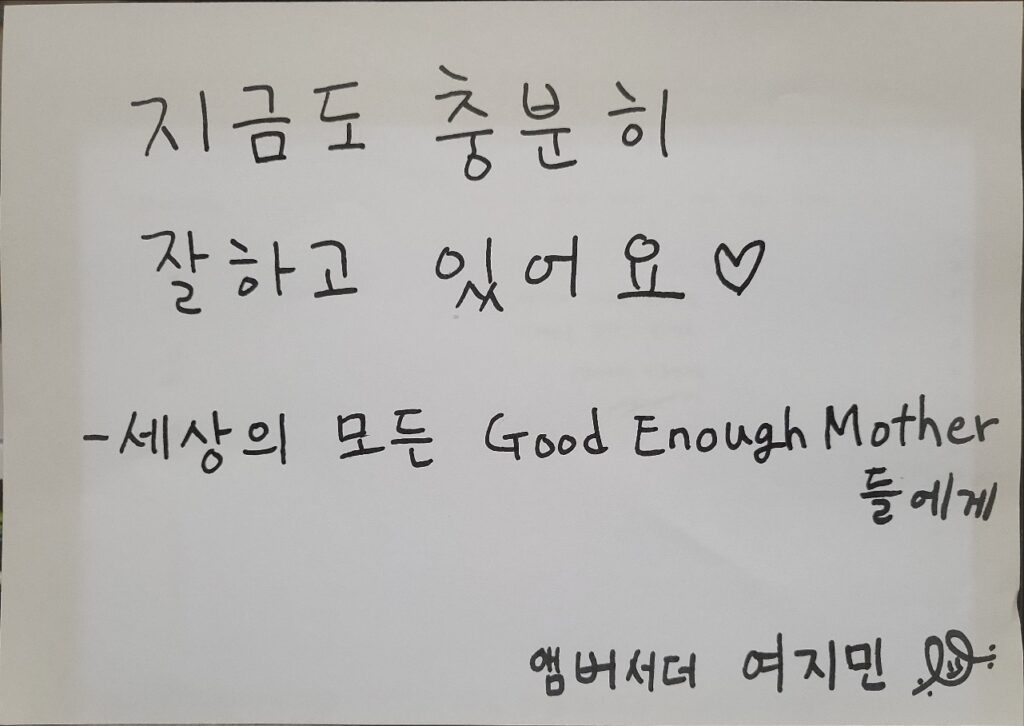 지금도 충분히
잘하고 있어요♡
-세상의 모든 Good Enough Mother
들에게
앰버서더 여지민